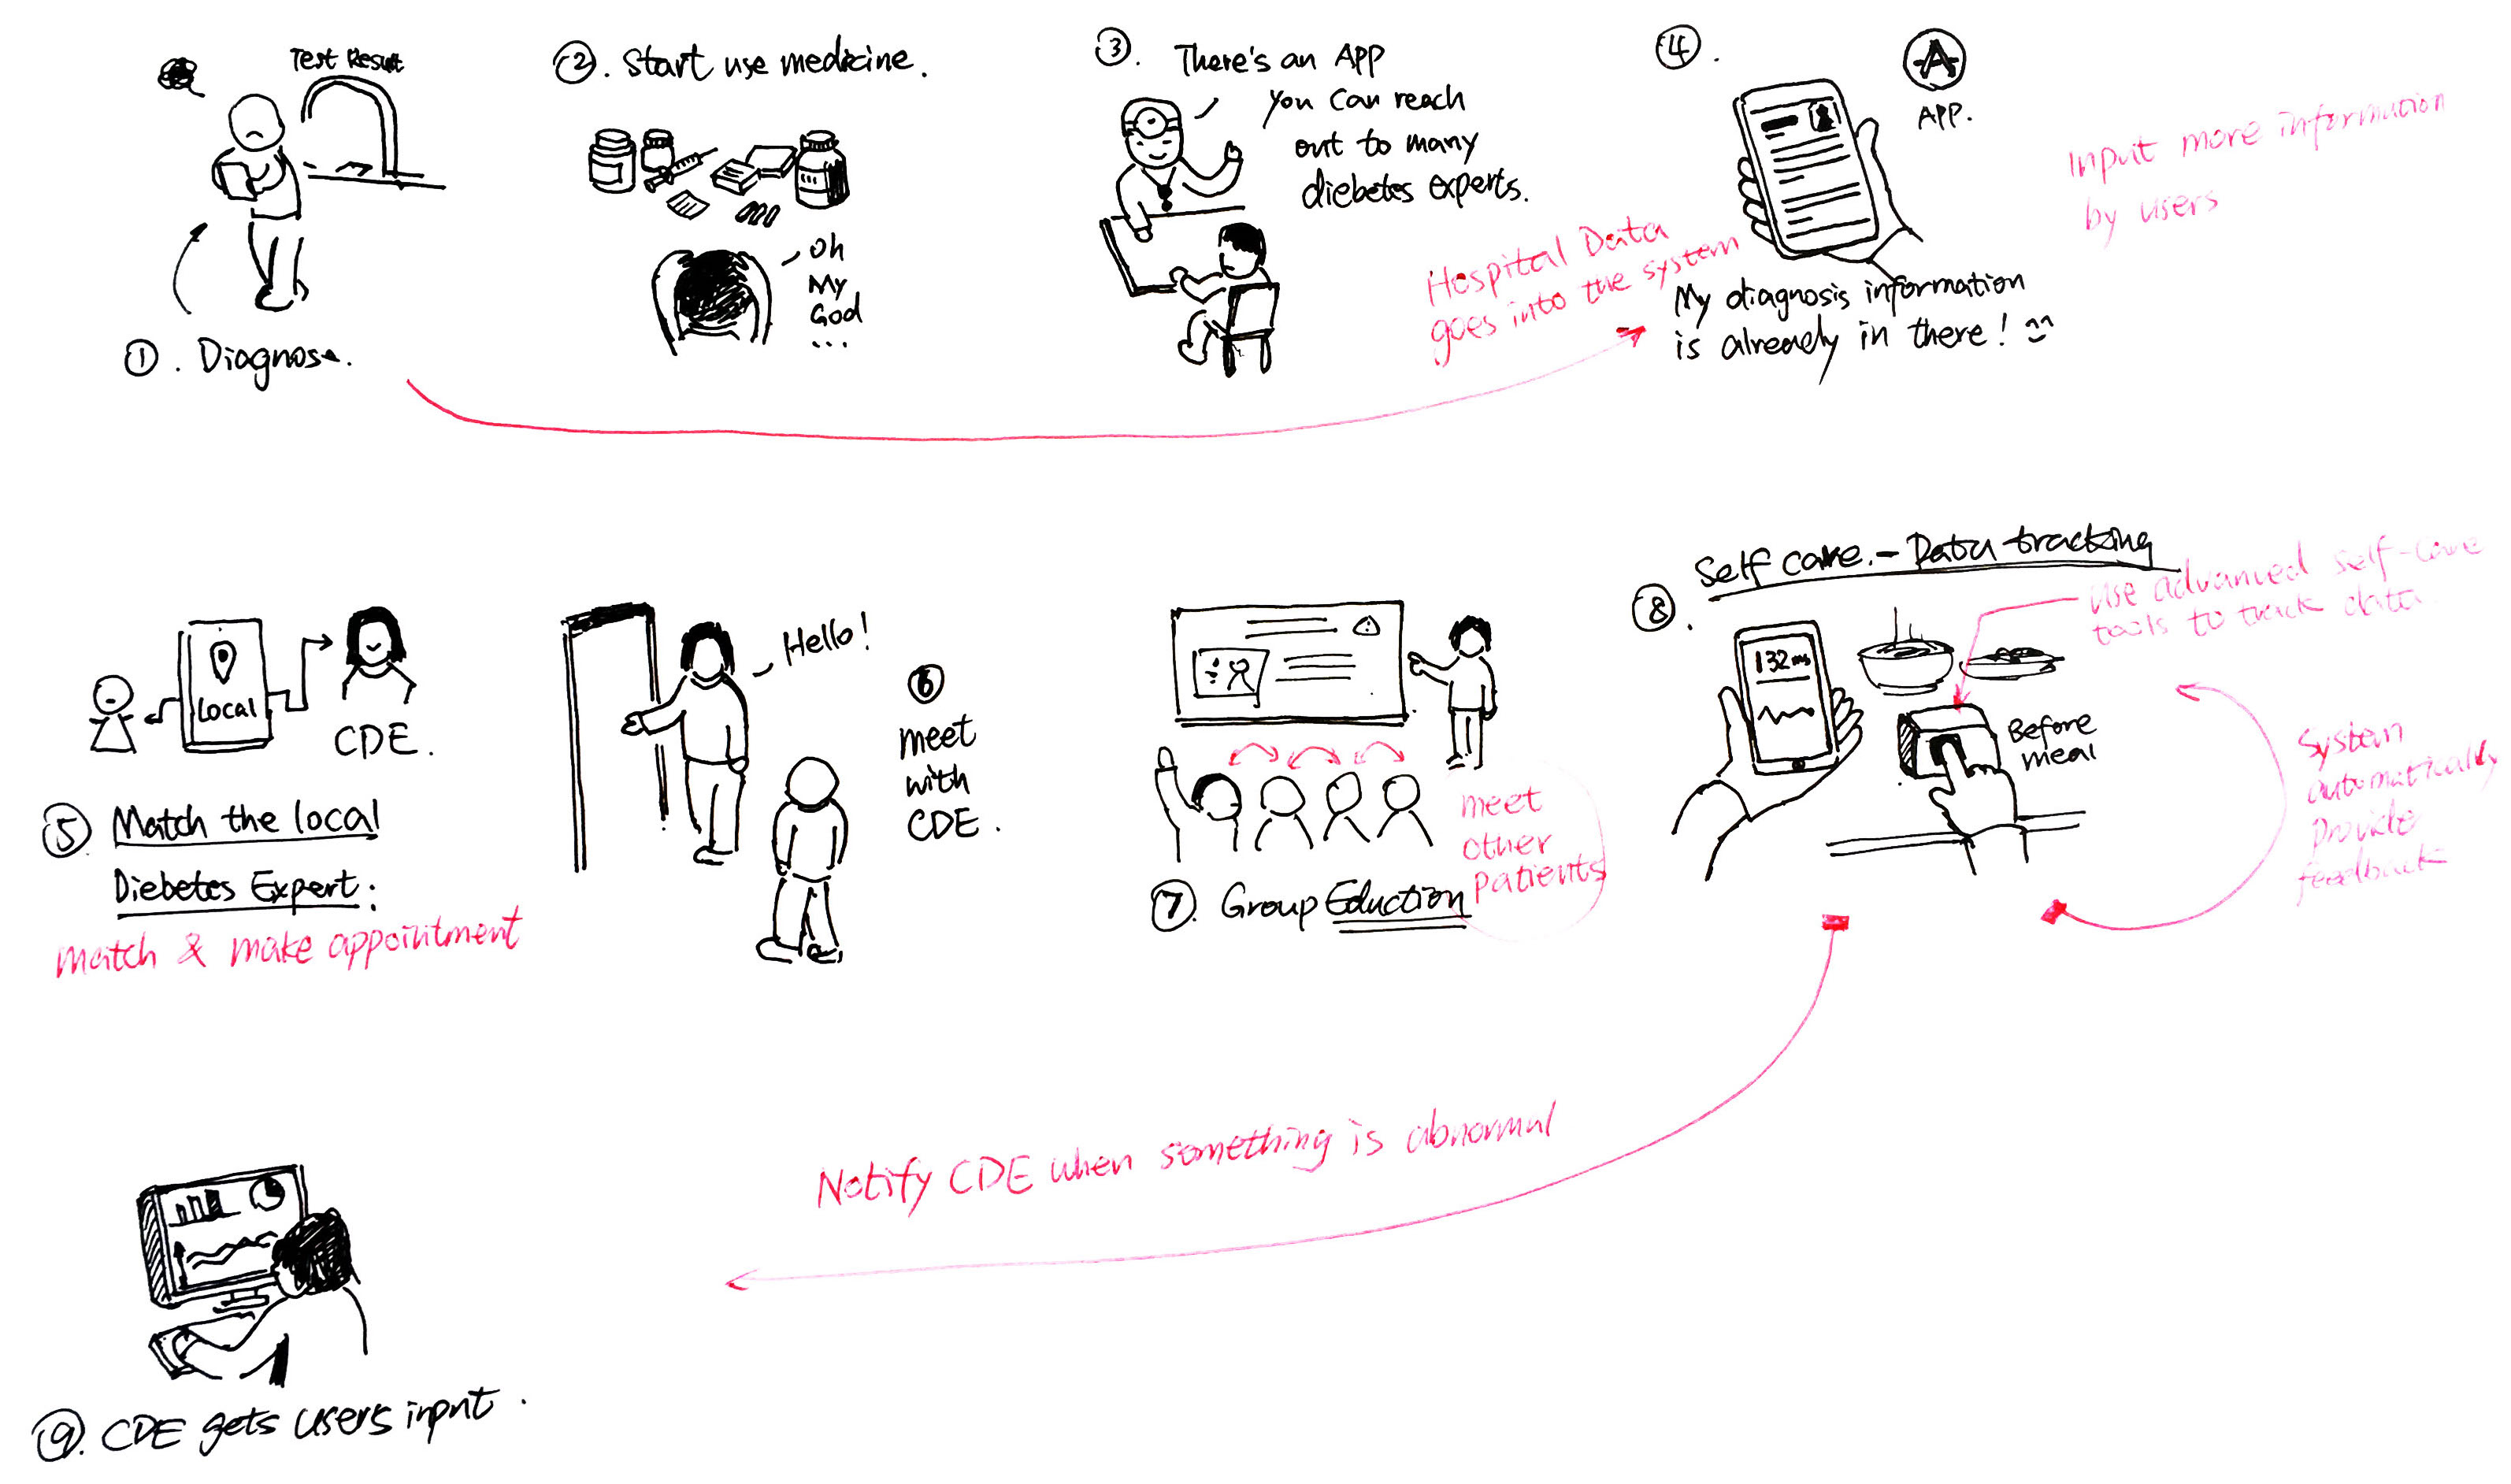 Test Result
① . Diagnose.
② . Start use medicine.
Oh
My
God
...
③ . There's an APP
You Can reach
out to many
diebetes experts.
Hospital Data
goes into the system
④ .
A
APP.
My diagnosis information
is already in there!
Input more information
by users
Local
CDE.
⑤ Match the local
Diebetes Expert:
Match & make appointment
Hello!
⑥
meet
with
CDE.
meet
other
patients
⑦. Group Eduction
⑧. Self care. - Data tracking
Use advanced self-care
tools to track data
132
Before
meal
System
automatically
provide
feedback
Notify CDE when something is abnormal
⑨. CDE gets users input.